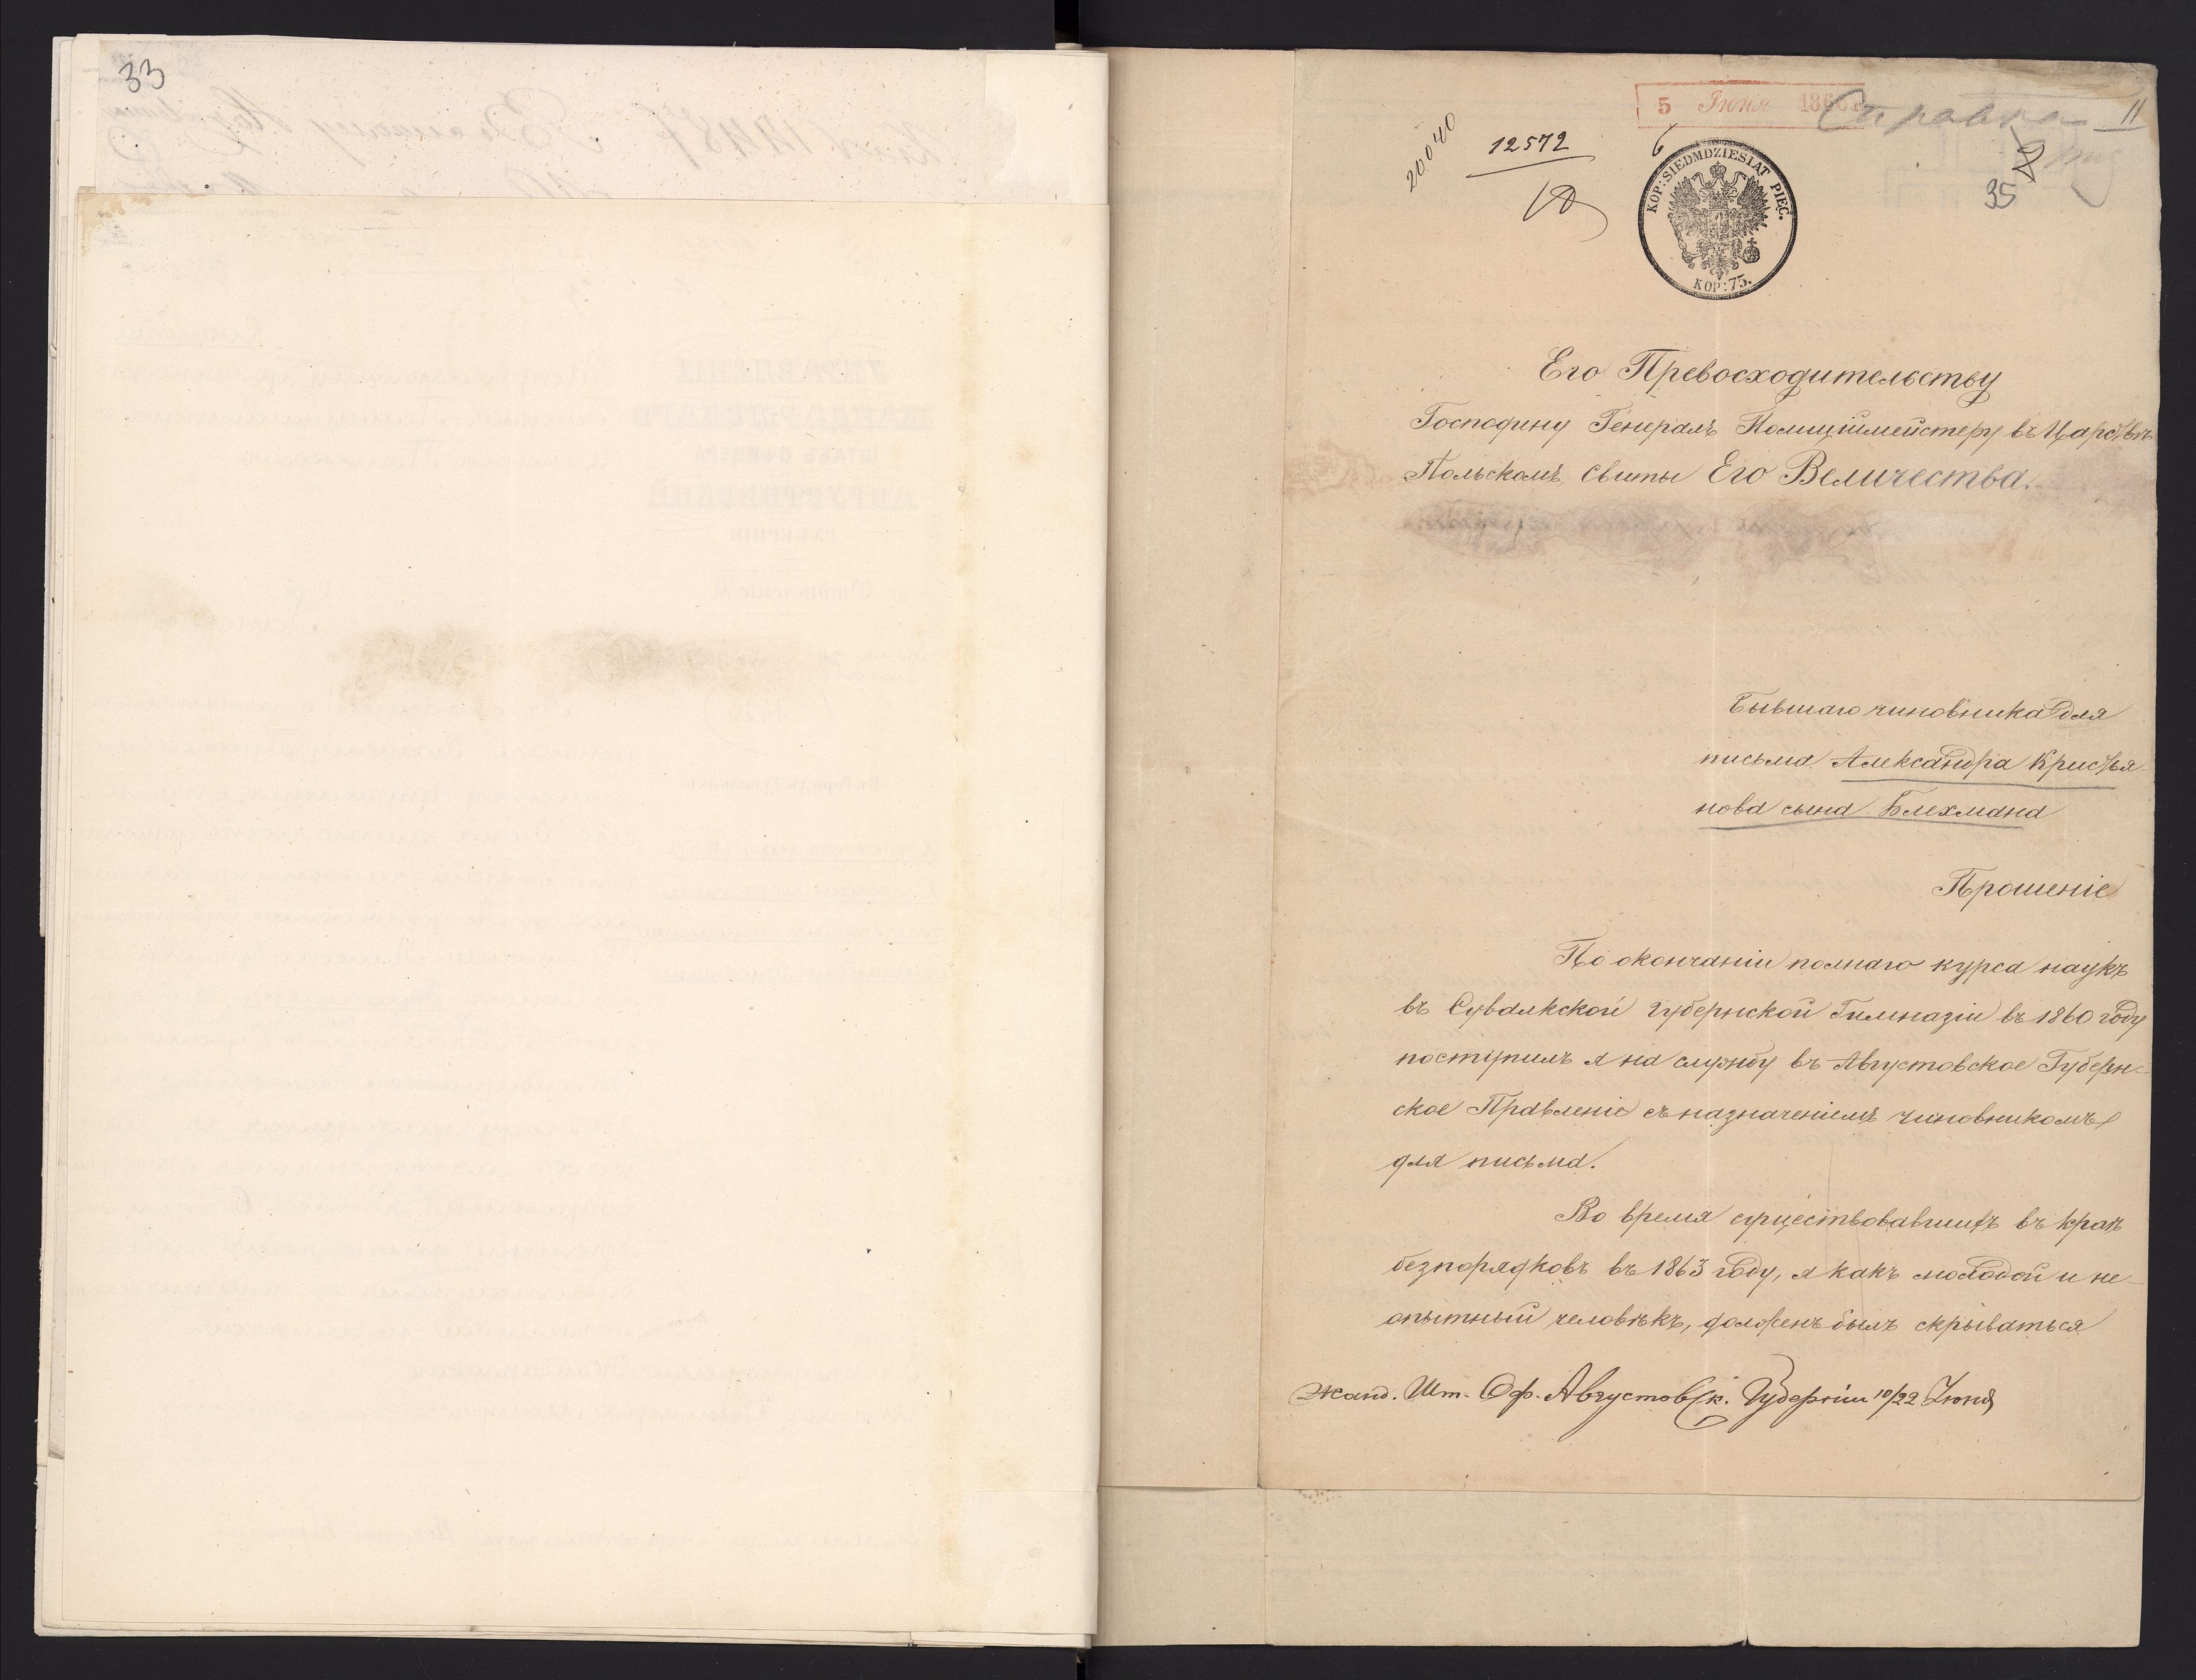 33
5 Июня 186
Справка
11
20040
12572
6
35
KOP: SIEDMDZIESIAT PIĘĆ.
KOP: 75.
Его Превосходительству
Господину Генералъ Полиціймейстеру въ Царствѣ
Польскомъ, Свиты Его Величества.
Бывшаго чиновника для
письма Александра Кристья-
нова сына Блехмана
Прошеніе
По окончаніи полнаго курса наукъ
въ Сувалкской Губернской Гимназіи въ 1860 году
поступилъ я на службу въ Августовское Губерн-
ское Правленіе съ назначеніемъ чиновникомъ
для письма.
Во время существовавшихъ въ краѣ
безпорядковъ въ 1863 году, я какъ молодой и не-
опытный человѣкъ, долженъ былъ скрываться
Жанд. Шт. Оф. Августовск. Губерніи 10/22 Іюня